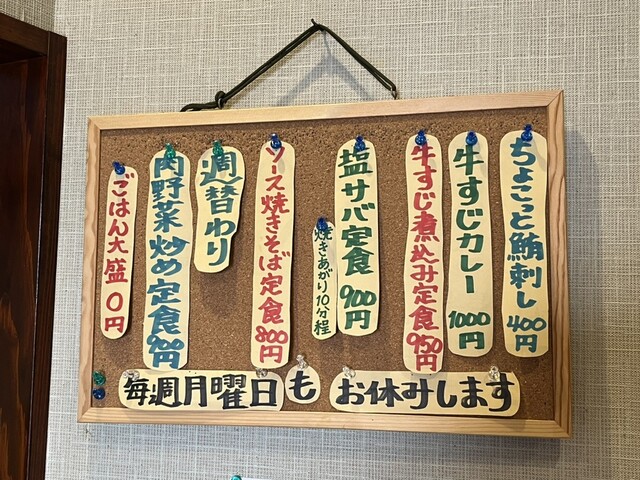 ちょこっと鮪刺し 400円
牛すじカレー 1000円
牛すじ煮込み定食 950円
塩サバ定食 900円
焼きあがり10分程
ソース焼きそば定食 800円
週替わり
肉野菜炒め定食 900円
ごはん大盛 0円
毎週月曜日も お休みします